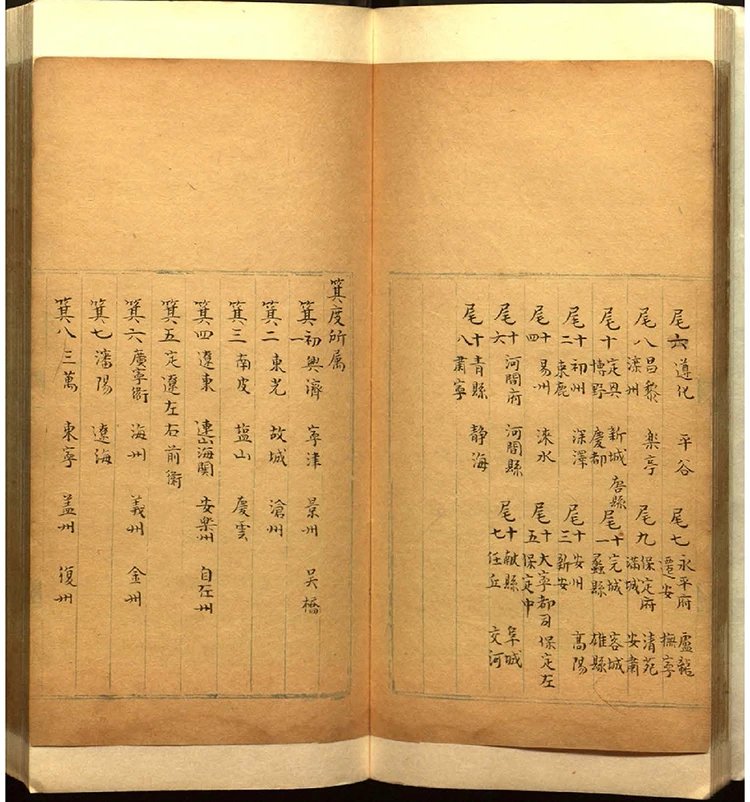 尾六 遵化 平谷 尾七 永平府 盧龍 遷安 撫寧
尾八 昌黎 樂亭 灤州 尾九 保定府 清苑 滿城 安肅
尾十 定興 新城 唐縣 博野 慶都 尾十一 完城 容城 蠡縣 雄縣
尾十二 初州 深澤 束鹿 尾十三 安州 新安 高陽
尾十四 易州 淶水 尾十五 大寧都司 保定左 保定中
尾十六 河間府 河間縣 尾十七 献縣 阜城 任丘 交河
尾十八 青縣 静海 肅寧
箕度所属
箕初一 興濟 寧津 景州 吴橋
箕二 東光 故城 滄州
箕三 南皮 塩山 慶雲
箕四 遼東 連山海関 安樂州 自在州
箕五 定遼左右前衛
箕六 廣寧衛 海州 義州 金州
箕七 瀋陽 遼海
箕八 三萬 東寧 盖州 復州